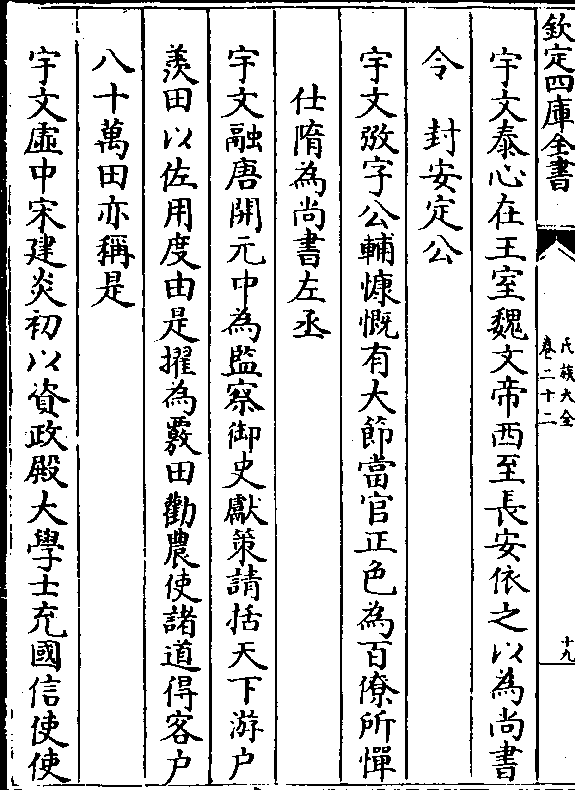 欽定四庫全書
氏族大全
卷二十二
十九
宇文泰心在王室魏文帝西至長安依之以為尚書
令　封安定公
宇文㢸字公輔慷慨有大節當官正色為百僚所憚
仕隋為尚書左丞
宇文融唐開元中為監察御史獻策請括天下游户
羨田以佐用度由是擢為覈田勸農使諸道得客户
八十萬田亦稱是
宇文虛中宋建炎初以資政殿大學士充國信使使